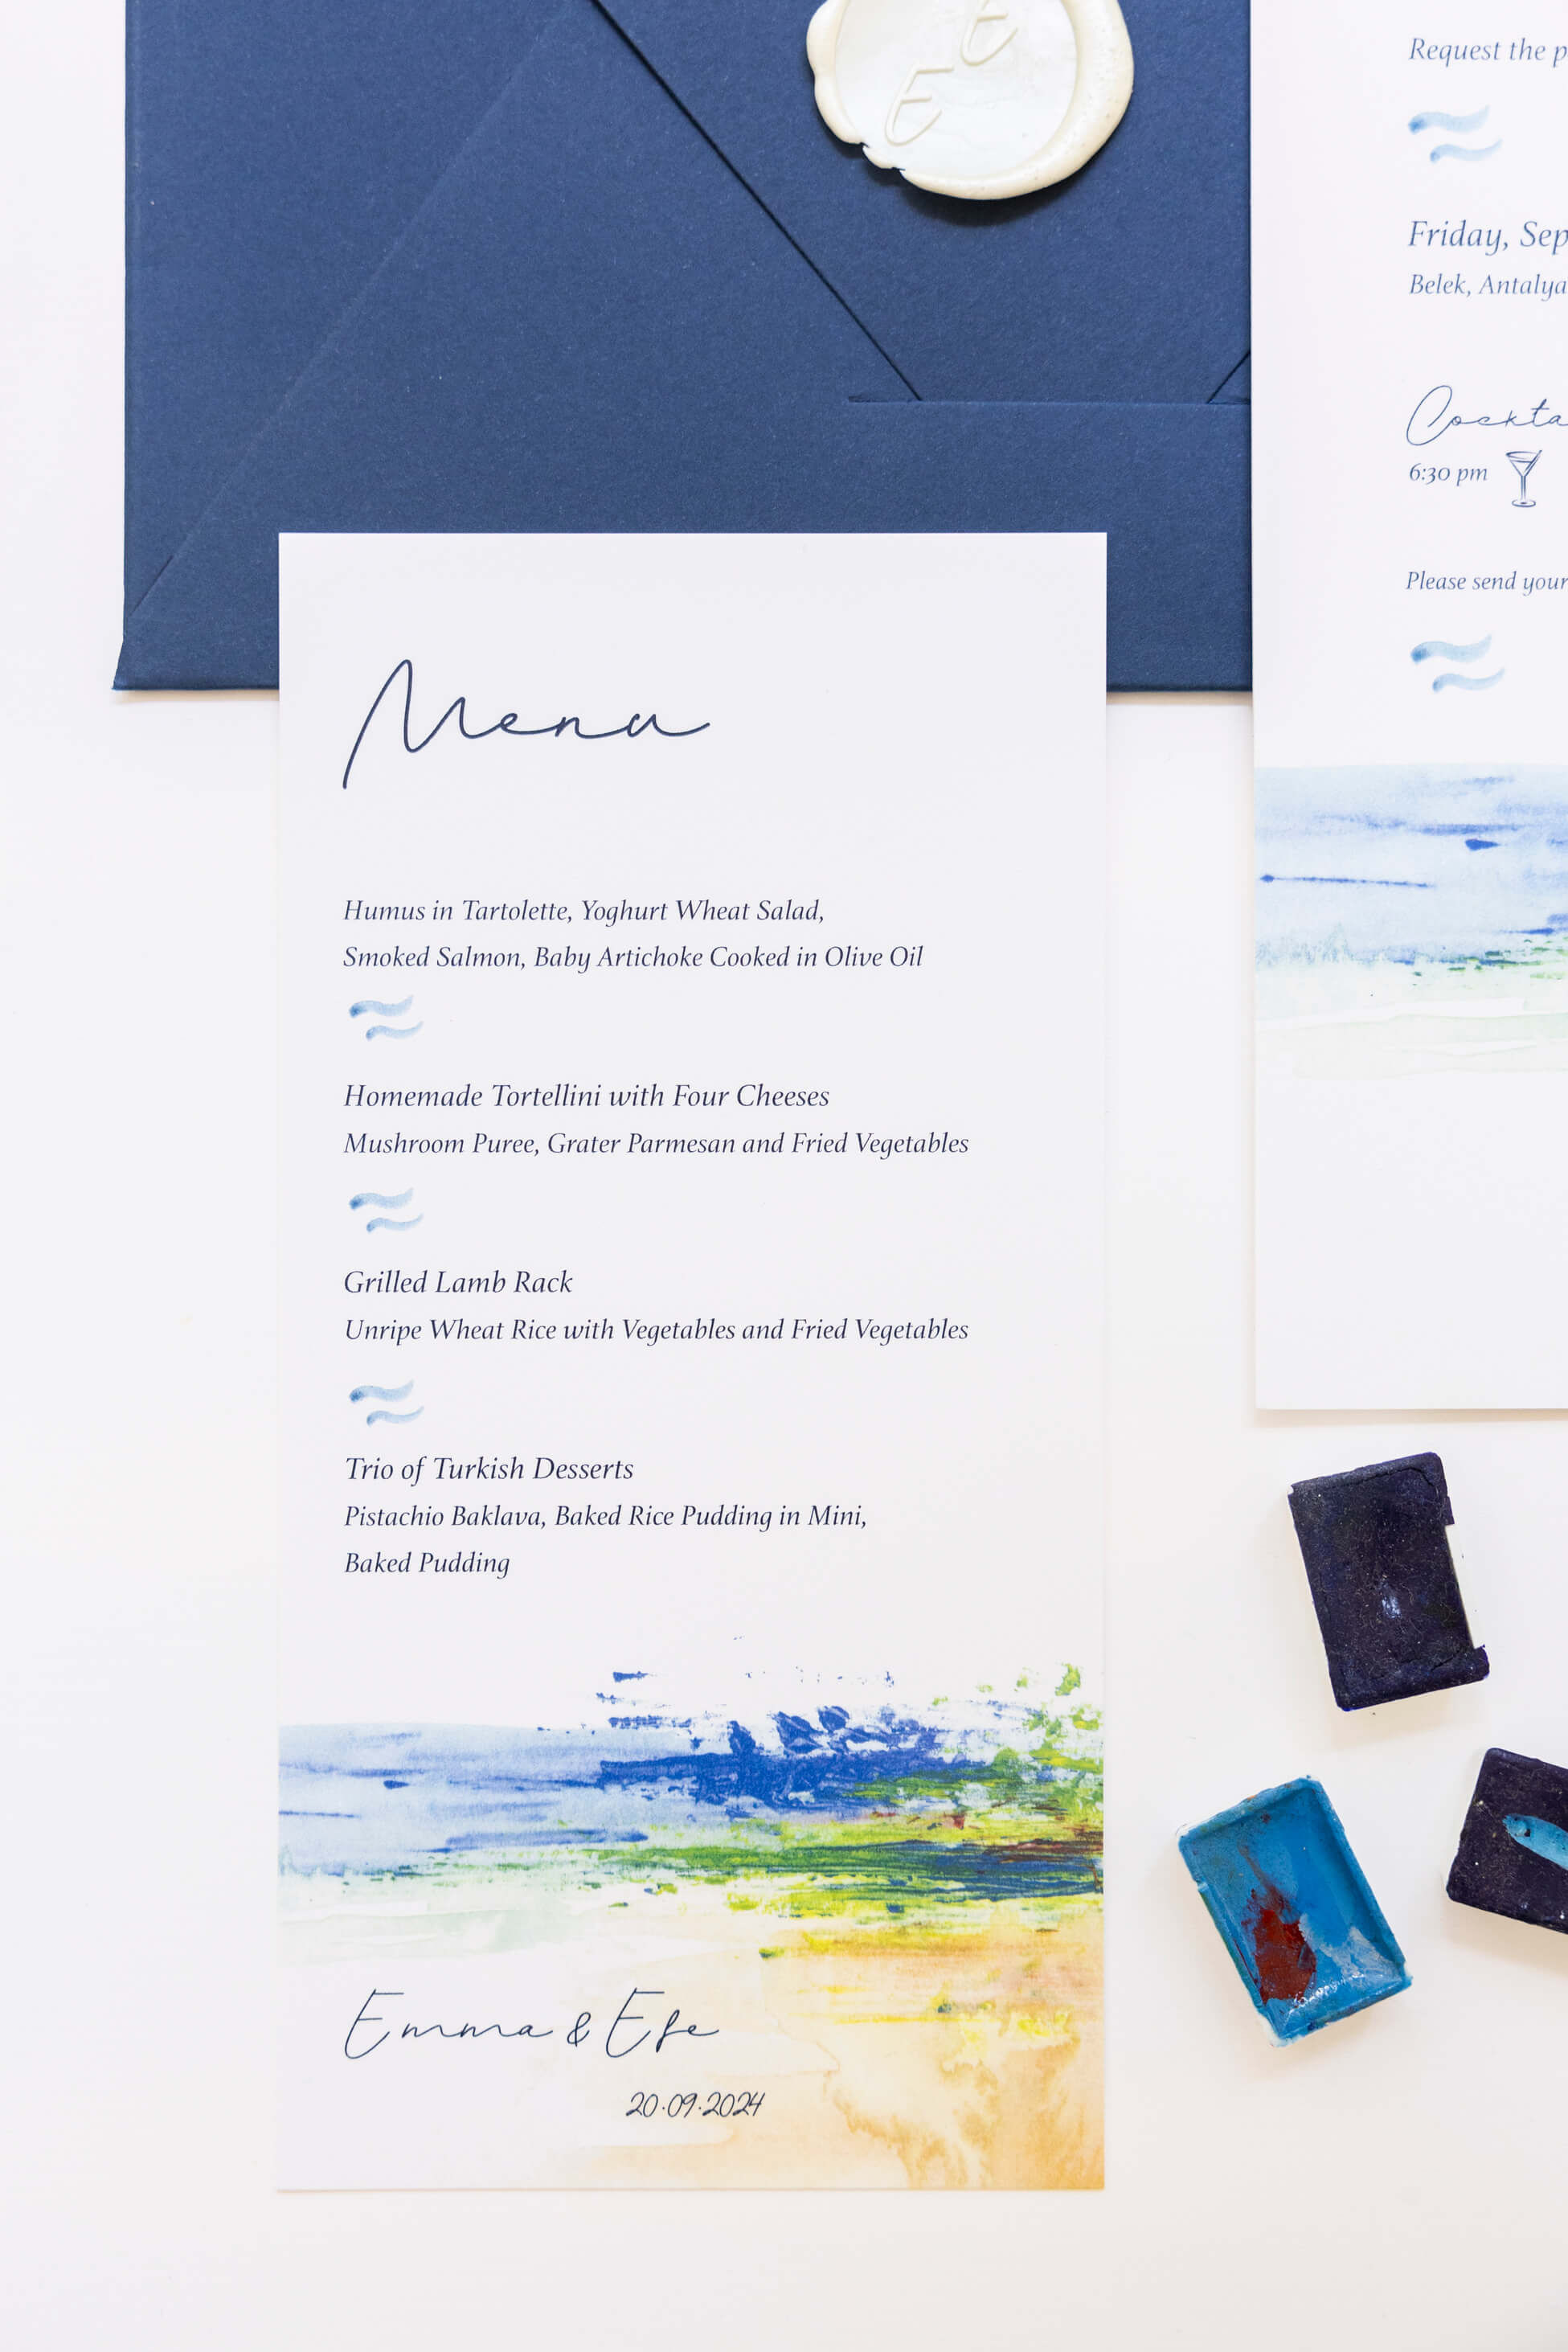 E
E
Menu
Humus in Tartolette, Yoghurt Wheat Salad,
Smoked Salmon, Baby Artichoke Cooked in Olive Oil
Homemade Tortellini with Four Cheeses
Mushroom Puree, Grater Parmesan and Fried Vegetables
Grilled Lamb Rack
Unripe Wheat Rice with Vegetables and Fried Vegetables
Trio of Turkish Desserts
Pistachio Baklava, Baked Rice Pudding in Mini,
Baked Pudding
Emma & Efe
20.09.2024
Request the
Friday,
Belek, Antalya
6:30 pm
Please send your